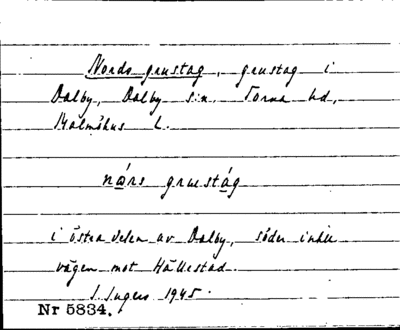 Nords grustag, grustag i
Dalby, Dalby sn. Torna hd,
Malmöhus L.
grustág
i östra delen av Dalby, söder intill
vägen mot Hällestad.
I. Ingers 1945.
Nr 5834.